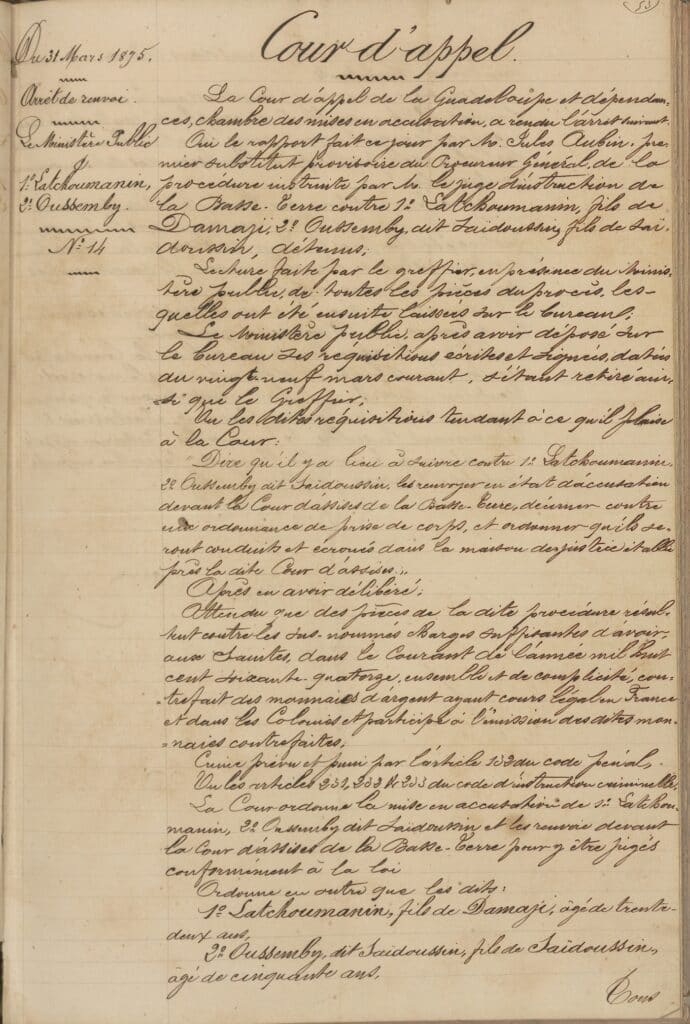 53
Du 31 Mars 1875.
Arrêt de renvoi.
Le Ministère Public
C.
1º Latchoumanin,
2º Oussemby.
Nº 14
Cour d'appel.
La Cour d'appel de la Guadeloupe et dépendan-
ces, chambre des mises en accusation, a rendu l'arrêt suivant.
Ouï le rapport fait ce jour par Mr. Jules Aubin, pre-
mier substitut provisoire du Procureur Général, de la
procédure instruite par Mr. le juge d'instruction de
la Basse-Terre contre 1º Latchoumanin, fils de
Damaji, 2º Oussemby, dit Saïdoussin, fils de Saï-
doussin, détenus;
Lecture faite par le greffier, en présence du Minis-
tère public, de toutes les pièces du procès, les-
quelles ont été ensuite laissées sur le bureau;
Le Ministère public, après avoir déposé sur
le bureau ses réquisitions écrites et signées, datées
du vingt-neuf mars courant, s'étant retiré ain-
=si que le Greffier;
Vu les dites réquisitions tendant à ce qu'il plaise
à la Cour:
Dire qu'il y a lieu à suivre contre 1º Latchoumanin
2º Oussemby dit Saïdoussin, les renvoyer en état d'accusation
devant la Cour d'assises de la Basse-Terre, décerner contre
eux ordonnance de prise de corps, et ordonner qu'ils se-
ront conduits et écroués dans la maison de justice établie
près la dite Cour d'assises;
Après en avoir délibéré;
Attendu que des pièces de la dite procédure résul-
tent contre les sus-nommés charges suffisantes d'avoir,
aux Saintes, dans le courant de l'année mil huit
cent soixante-quatorze, ensemble et de complicité, con-
trefait des monnaies d'argent ayant cours légal en France
et dans les Colonies et participé à l'émission des dites mon-
=naies contrefaites;
Crime prévu et puni par l'article 132 du code pénal,
Vu les articles 231, 232 & 233 du code d'instruction criminelle,
La Cour ordonne la mise en accusation de 1º Latchou-
manin, 2º Oussemby dit Saïdoussin et les renvoie devant
la Cour d'assises de la Basse-Terre pour y être jugés
conformément à la loi
Ordonne en outre que les dits:
1º Latchoumanin, fils de Damaji, âgé de trente-
deux ans,
2º Oussemby, dit Saïdoussin, fils de Saïdoussin,
âgé de cinquante ans,
Tous